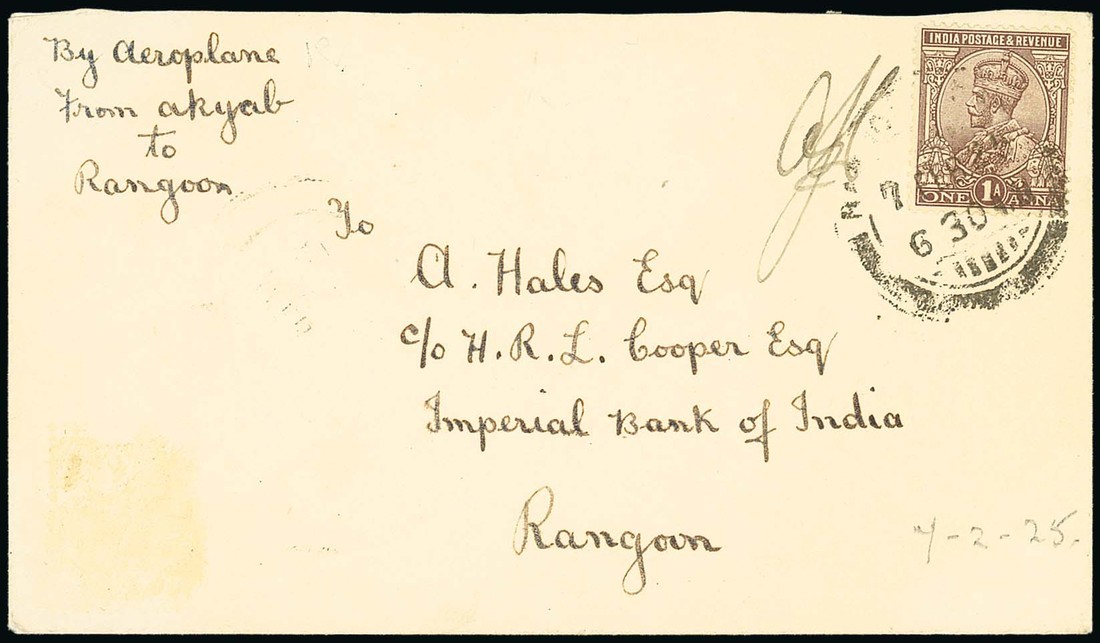 By Aeroplane
From akyab
to
Rangoon
INDIA POSTAGE & REVENUE
ONE 1A ANNA
7
6 30
To
A. Hales Esq
c/o H. R. L. Cooper Esq
Imperial Bank of India
Rangoon
7-2-25.